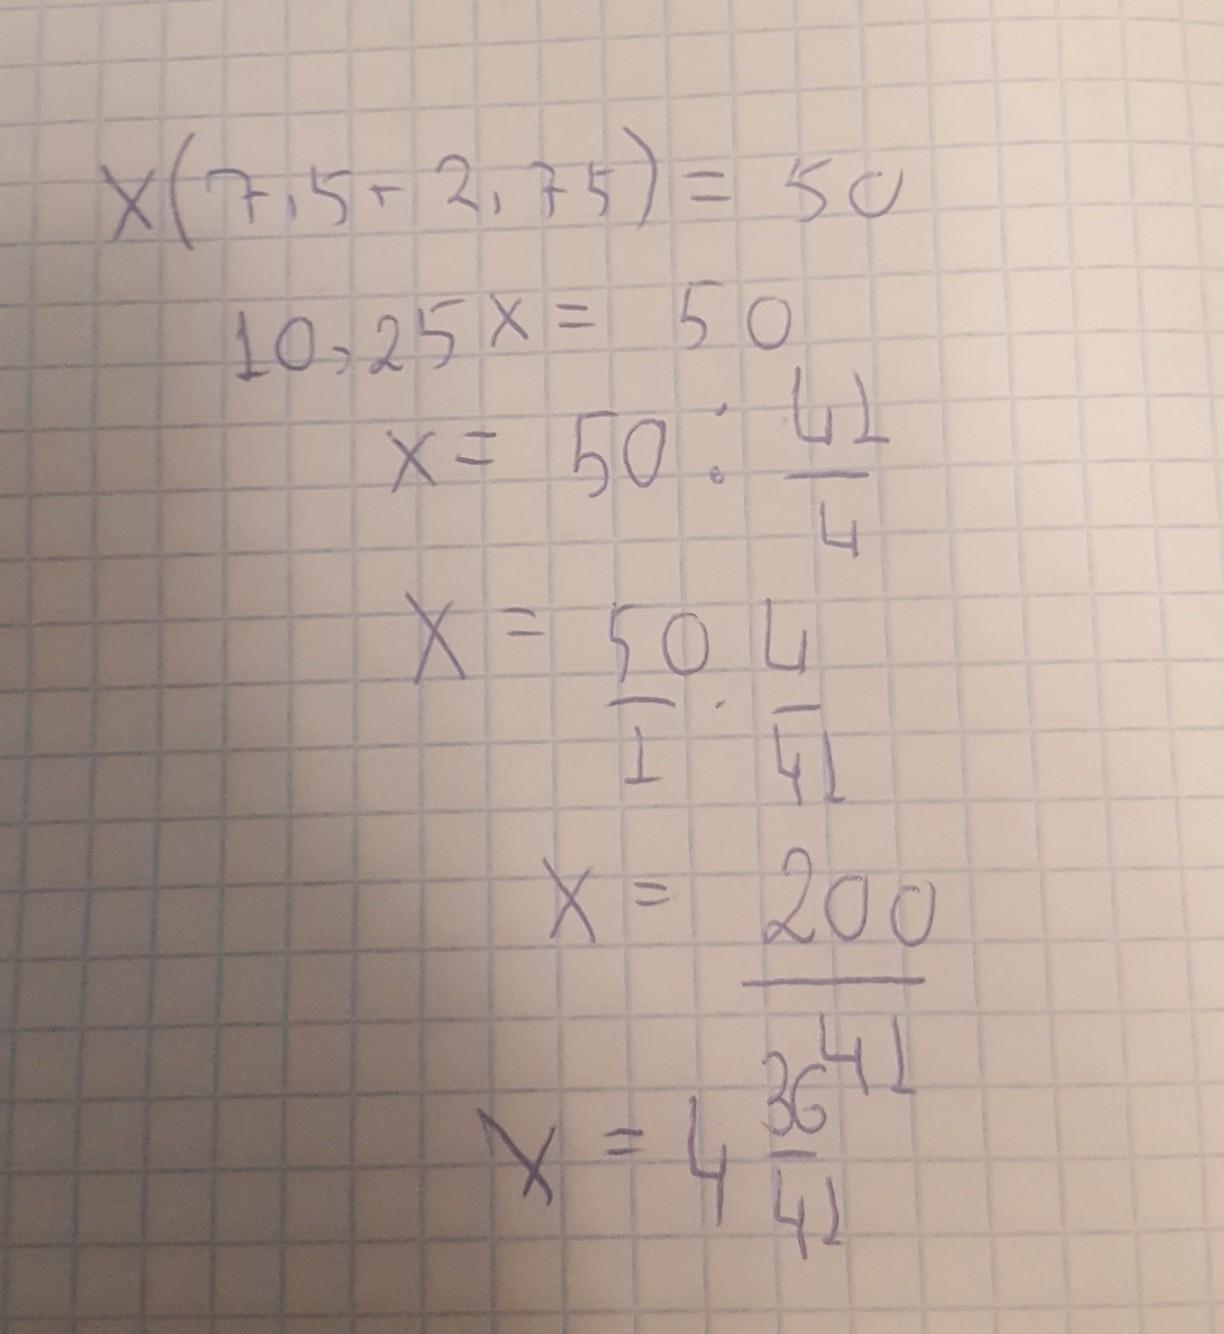 x(7,5+2,75)=50
10,25x=50
x=50:41/4
x=50/1·4/41
x=200/41
x=4 36/41